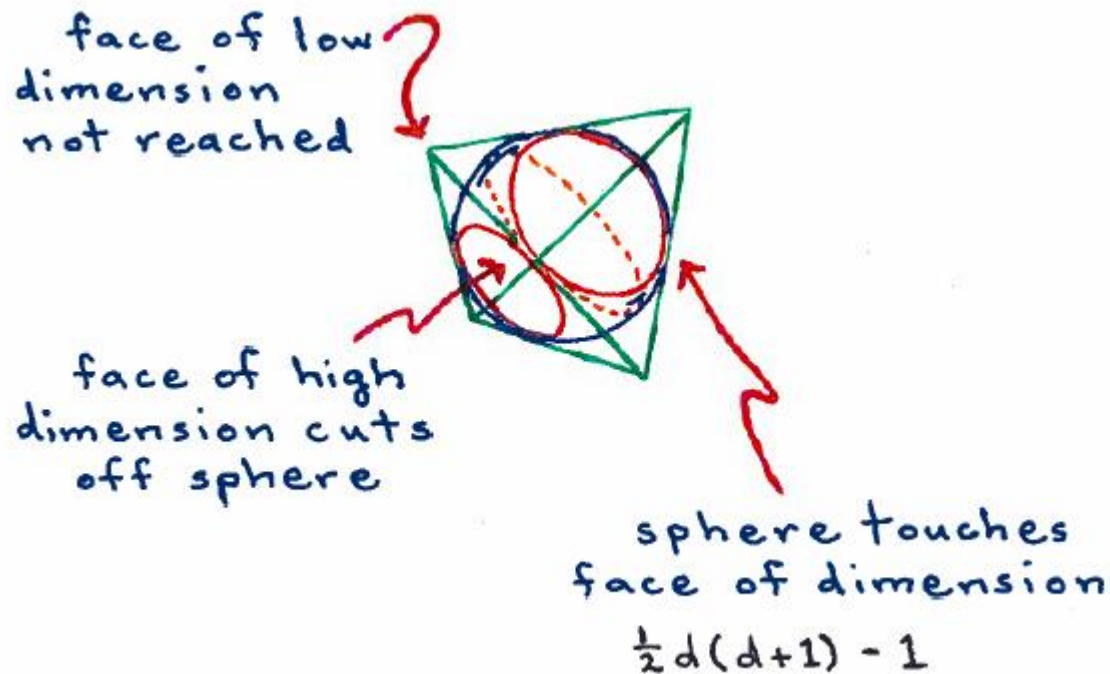 face of low
dimension
not reached
face of high
dimension cuts
off sphere
sphere touches
face of dimension
½ d(d+1) - 1